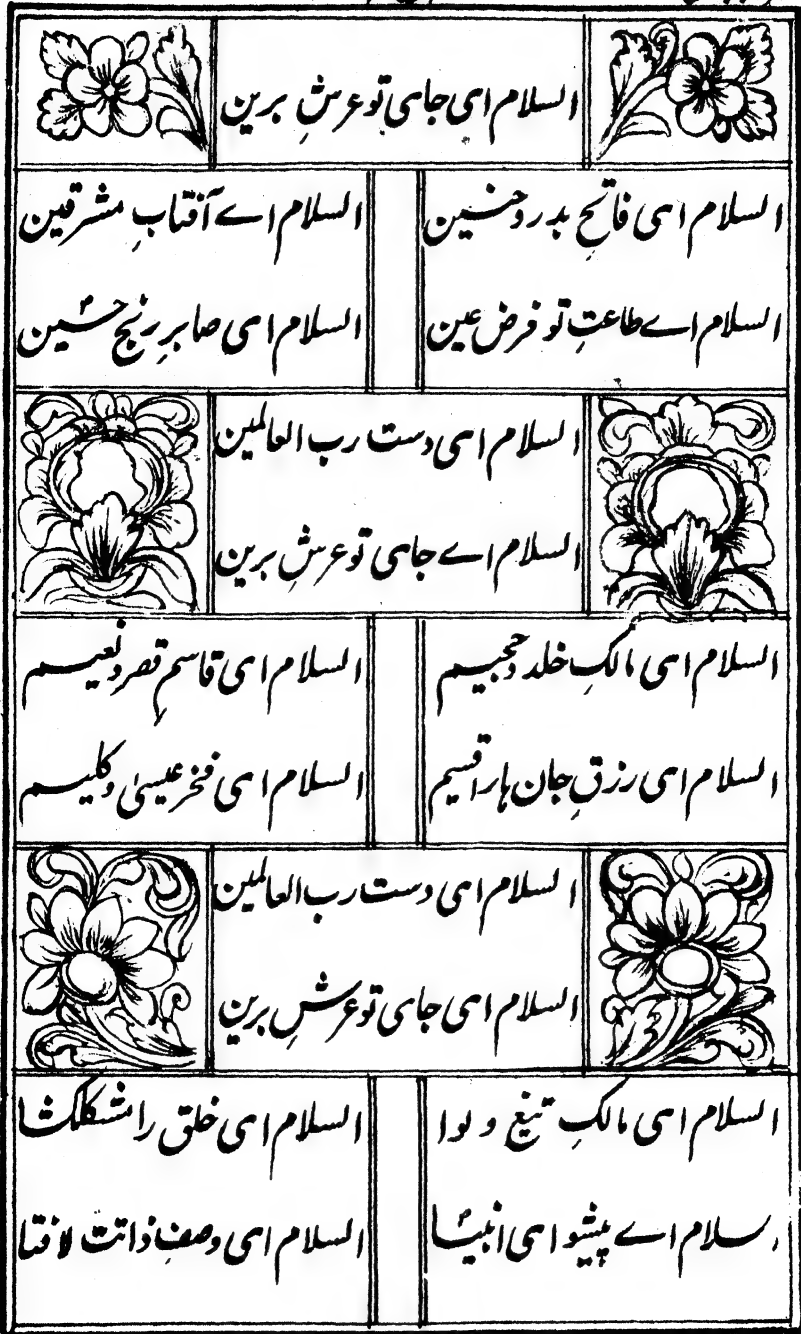 السلام ای جای تو عرشِ برین
السلام ای فاتحِ بدر و حنین
السلام اے آفتابِ مشرقین
السلام اے طاعتِ تو فرض عین
السلام ای صابرِ رنجِ حسینؑ
السلام ای دست رب العالمین
السلام اے جای تو عرشِ برین
السلام ای مالکِ خلد و جحیم
السلام ای قاسمِ قصر و نعیم
السلام ای رزقِ جان ہارا قسیم
السلام ای فخر عیسیٰ و کلیم
السلام ای دست رب العالمین
السلام ای جای تو عرشِ برین
السلام ای مالکِ تیغ و لوا
السلام ای خلق را مشکلکشا
السلام اے پیشوای انبیاؑ
السلام ای وصفِ ذاتت لافتا